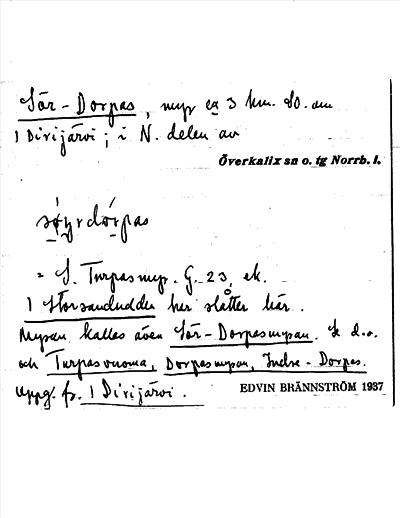 Sör-Dorpas, myr ca 3 km. SO. om
1 Dirijärvi; i N. delen av
Överkalix sn o. tg Norrb. l.
søyrdórpas
= S. Turpasmyr. G. 23, ek.
1 Storsanduddde har slåtter här.
Myran kallas även Sör-Dorpasmyran. Se d.o.
och Turpasvuoma, Dorpasmyran, Indre-Dorpas.
Uppg. fr. 1 Dirijärvi.
EDVIN BRÄNNSTRÖM 1937